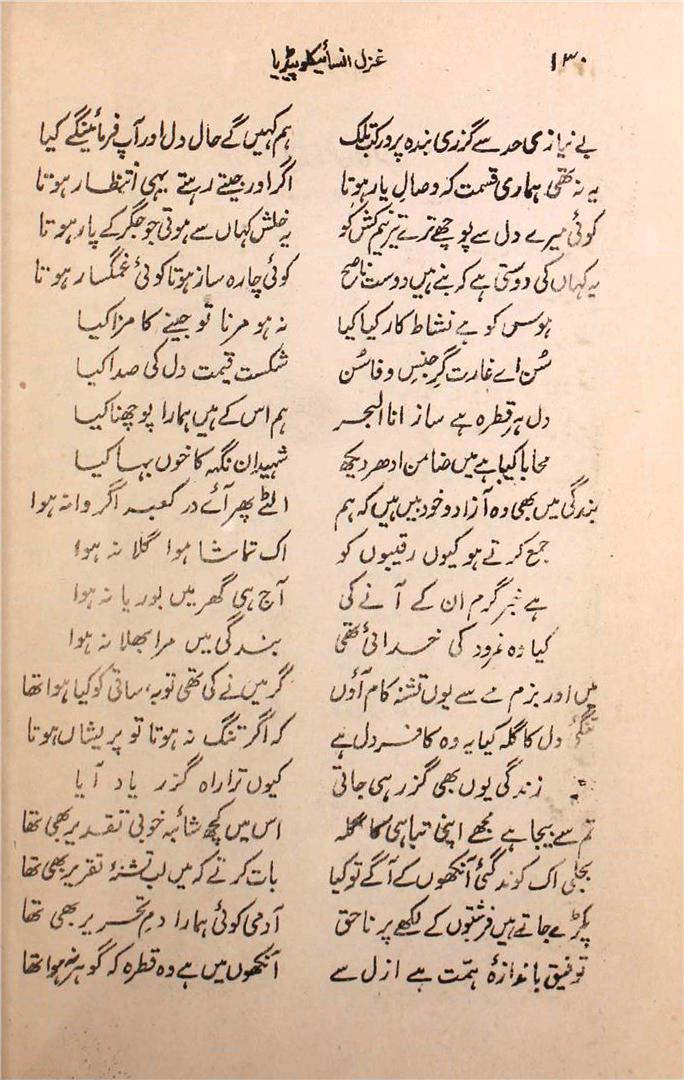 ۱۳۰ غزل انسائیکلوپیڈیا
بے نیازی حد سے گزری بندہ پرور کب تلک ہم کہیں گے حال دل اور آپ فرمائینگے کیا
یہ نہ تھی ہماری قسمت کہ وصال یار ہوتا اگر اور جیتے رہتے یہی انتظار ہوتا
کوئی میرے دل سے پوچھے ترے تیر نیم کش کو یہ خلش کہاں سے ہوتی جو جگر کے پار ہوتا
یہ کہاں کی دوستی ہے کہ بنے ہیں دوست ناصح کوئی چارہ ساز ہوتا کوئی غمگسار ہوتا
ہوس کو ہے نشاط کار کیا کیا نہ ہو مرنا تو جینے کا مزا کیا
سُن اے غارت گر جنس وفا سُن شکست قیمت دل کی صدا کیا
دل ہر قطرہ ہے ساز انا البحر ہم اس کے ہیں ہمارا پوچھنا کیا
محابا کیا ہے میں ضامن ادھر دیکھ شہیدانِ نگہ کا خوں بہا کیا
بندگی میں بھی وہ آزاد و خود بیں ہیں کہ ہم الٹے پھر آئے در کعبہ اگر وا نہ ہوا
جمع کرتے ہو کیوں رقیبوں کو اک تماشا ہوا گلا نہ ہوا
ہے خبر گرم ان کے آنے کی آج ہی گھر میں بوریا نہ ہوا
کیا وہ نمرود کی خدائی تھی بندگی میں مرا بھلا نہ ہوا
میں اور بزم مے سے یوں تشنہ کام آؤں گر میں نے کی تھی توبہ، ساقی کو کیا ہوا تھا
تنگیٔ دل کا گلہ کیا یہ وہ کافر دل ہے کہ اگر تنگ نہ ہوتا تو پریشاں ہوتا
زندگی یوں بھی گزر ہی جاتی کیوں ترا راہ گزر یاد آیا
تم سے بیجا ہے مجھے اپنی تباہی کا گلہ اس میں کچھ شائبہ خوبی تقدیر بھی تھا
بجلی اک کوند گئی آنکھوں کے آگے تو کیا بات کرتے کہ میں لب تشنۂ تقریر بھی تھا
پکڑے جاتے ہیں فرشتوں کے لکھے پر ناحق آدمی کوئی ہمارا دمِ تحریر بھی تھا
توفیق باندازۂ ہمت ہے ازل سے آنکھوں میں ہے وہ قطرہ کہ گوہر نہ ہوا تھا